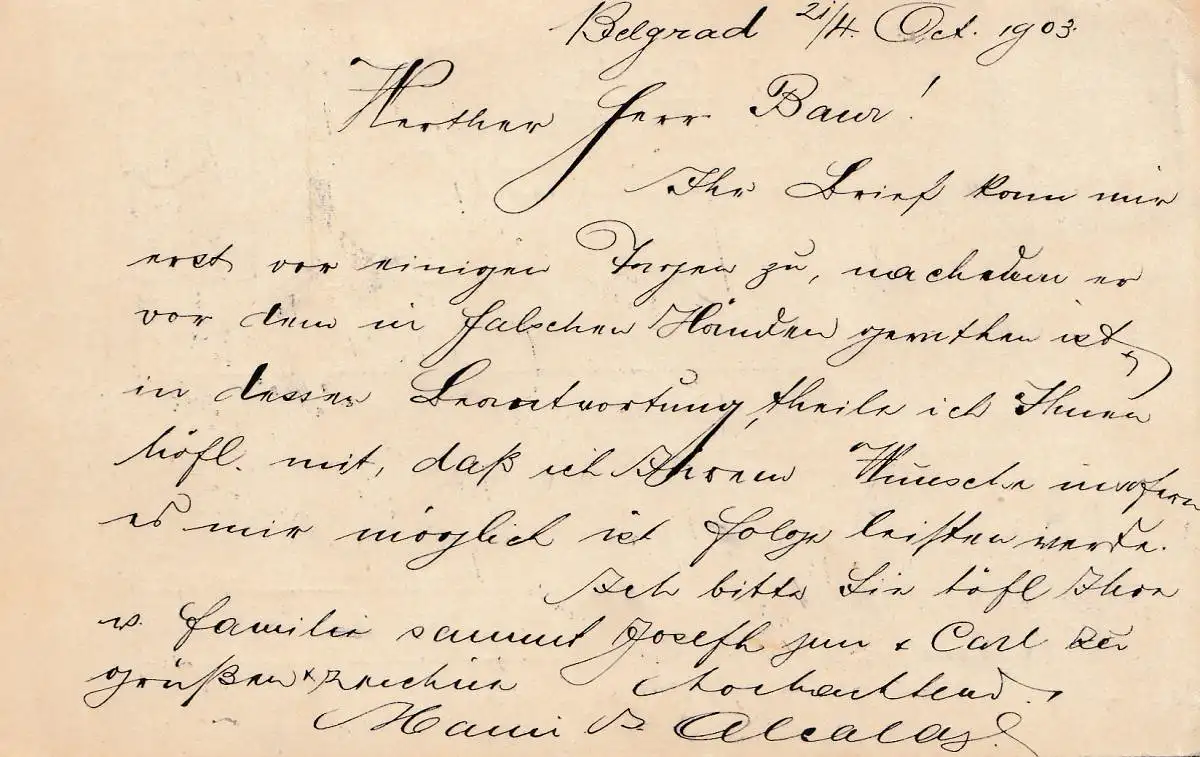 Belgrad 21/4. Oct. 1903.
Werther Herr Baur!
Ihr Brief kam mir
erst vor einigen Tagen zu, nachdem er
vor dem in falschen Händen gerathen ist,
in dessen Beantwortung, theile ich Ihnen
höfl. mit, daß ich Ihrem Wunsche insofern
es mir möglich ist folge leisten werde.
Ich bitte Sie höfl Ihre
w. familie sammt Joseph jun & Carl zu
grüßen & zeichne Hochachtend
B. Alcalay